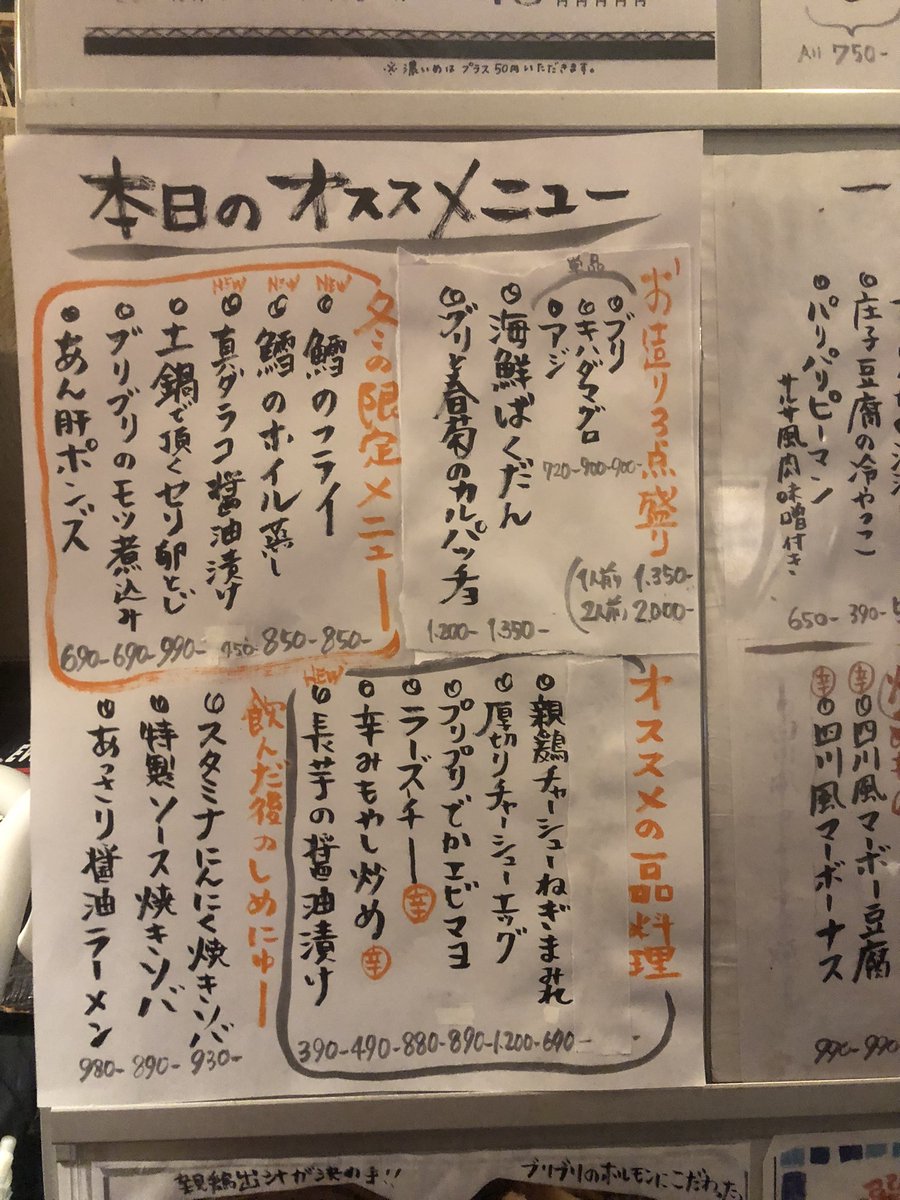 ※濃いめは プラス50円いただきます。
All 750-
本日のオススメメニュー
お造り3点盛り
(1人前 1.350-
2人前 2.000-
単品
ブリ
キハダマグロ
アジ
720- 900- 900-
海鮮ばくだん
1.350-
ブリと春菊のカルパッチョ
1.200-
冬の限定メニュー
NEW 鱈のフライ 850-
NEW 鱈のホイル蒸し 850-
NEW 真ダラコ醤油漬け 750-
土鍋で頂くセリ卵とじ 990-
ブリブリのモツ煮込み 690-
あん肝ポンズ 690-
オススメの一品料理
親鶏チャーシューねぎまみれ 690-
厚切りチャーシューエッグ 1.200-
プリプリでかエビマヨ 890-
ラーズーチー 辛 880-
辛みもやし炒め 辛 490-
NEW 長芋の醤油漬け 390-
飲んだ後のしめにゅー
スタミナにんにく焼きソバ 930-
特製ソース焼きソバ 890-
あっさり醤油ラーメン 980-
庄子豆腐の冷やっこ 390-
パリパリピーマン
サルサ風肉味噌付き 650-
辛 四川風マーボー豆腐 990-
辛 四川風マーボーナス 990-
親鶏出汁が決め手!!
ブリブリのホルモンにこだわった